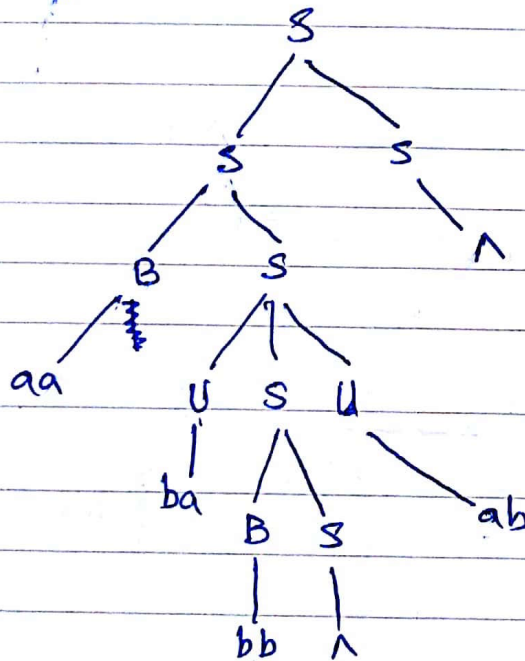 S
S S
B S Λ
aa U S U
ba B S ab
bb Λ